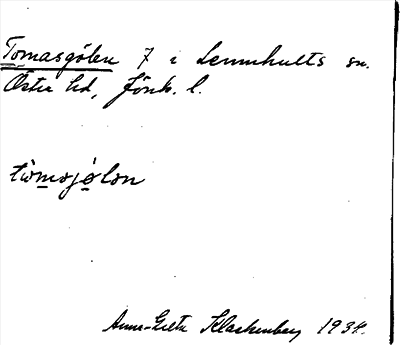 Tomasgölen 7 i Lemnhults sn.
Östra hd, Jönk. l.
tòmasjø̀lən
Anna-Greta Klackenberg 1934.